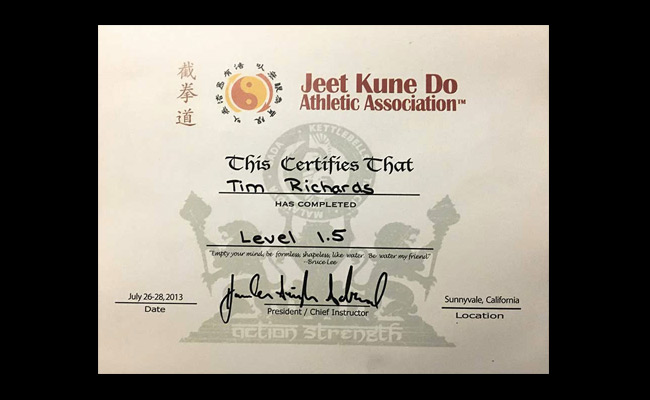 截拳道
Jeet Kune Do
Athletic Association™
KETTLEBELL
This Certifies That
Tim Richards
HAS COMPLETED
Level 1.5
"Empty your mind, be formless, shapeless, like water. Be water my friend."
-Bruce Lee
July 26-28, 2013
Date
President / Chief Instructor
Sunnyvale, California
Location
action strength